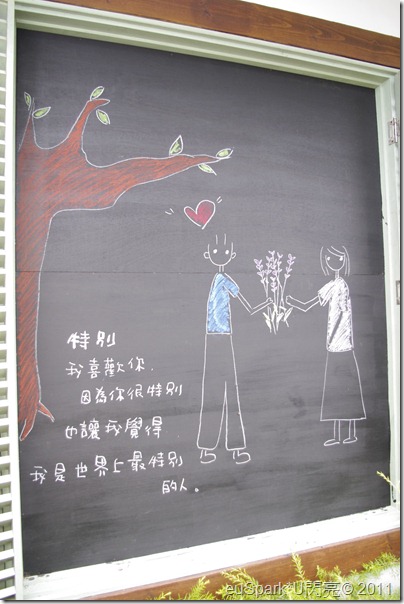 特別
我喜歡你.
因為你很特別
也讓我覺得
我是世界上最特別
的人。
euSpark U閃亮 © 2011